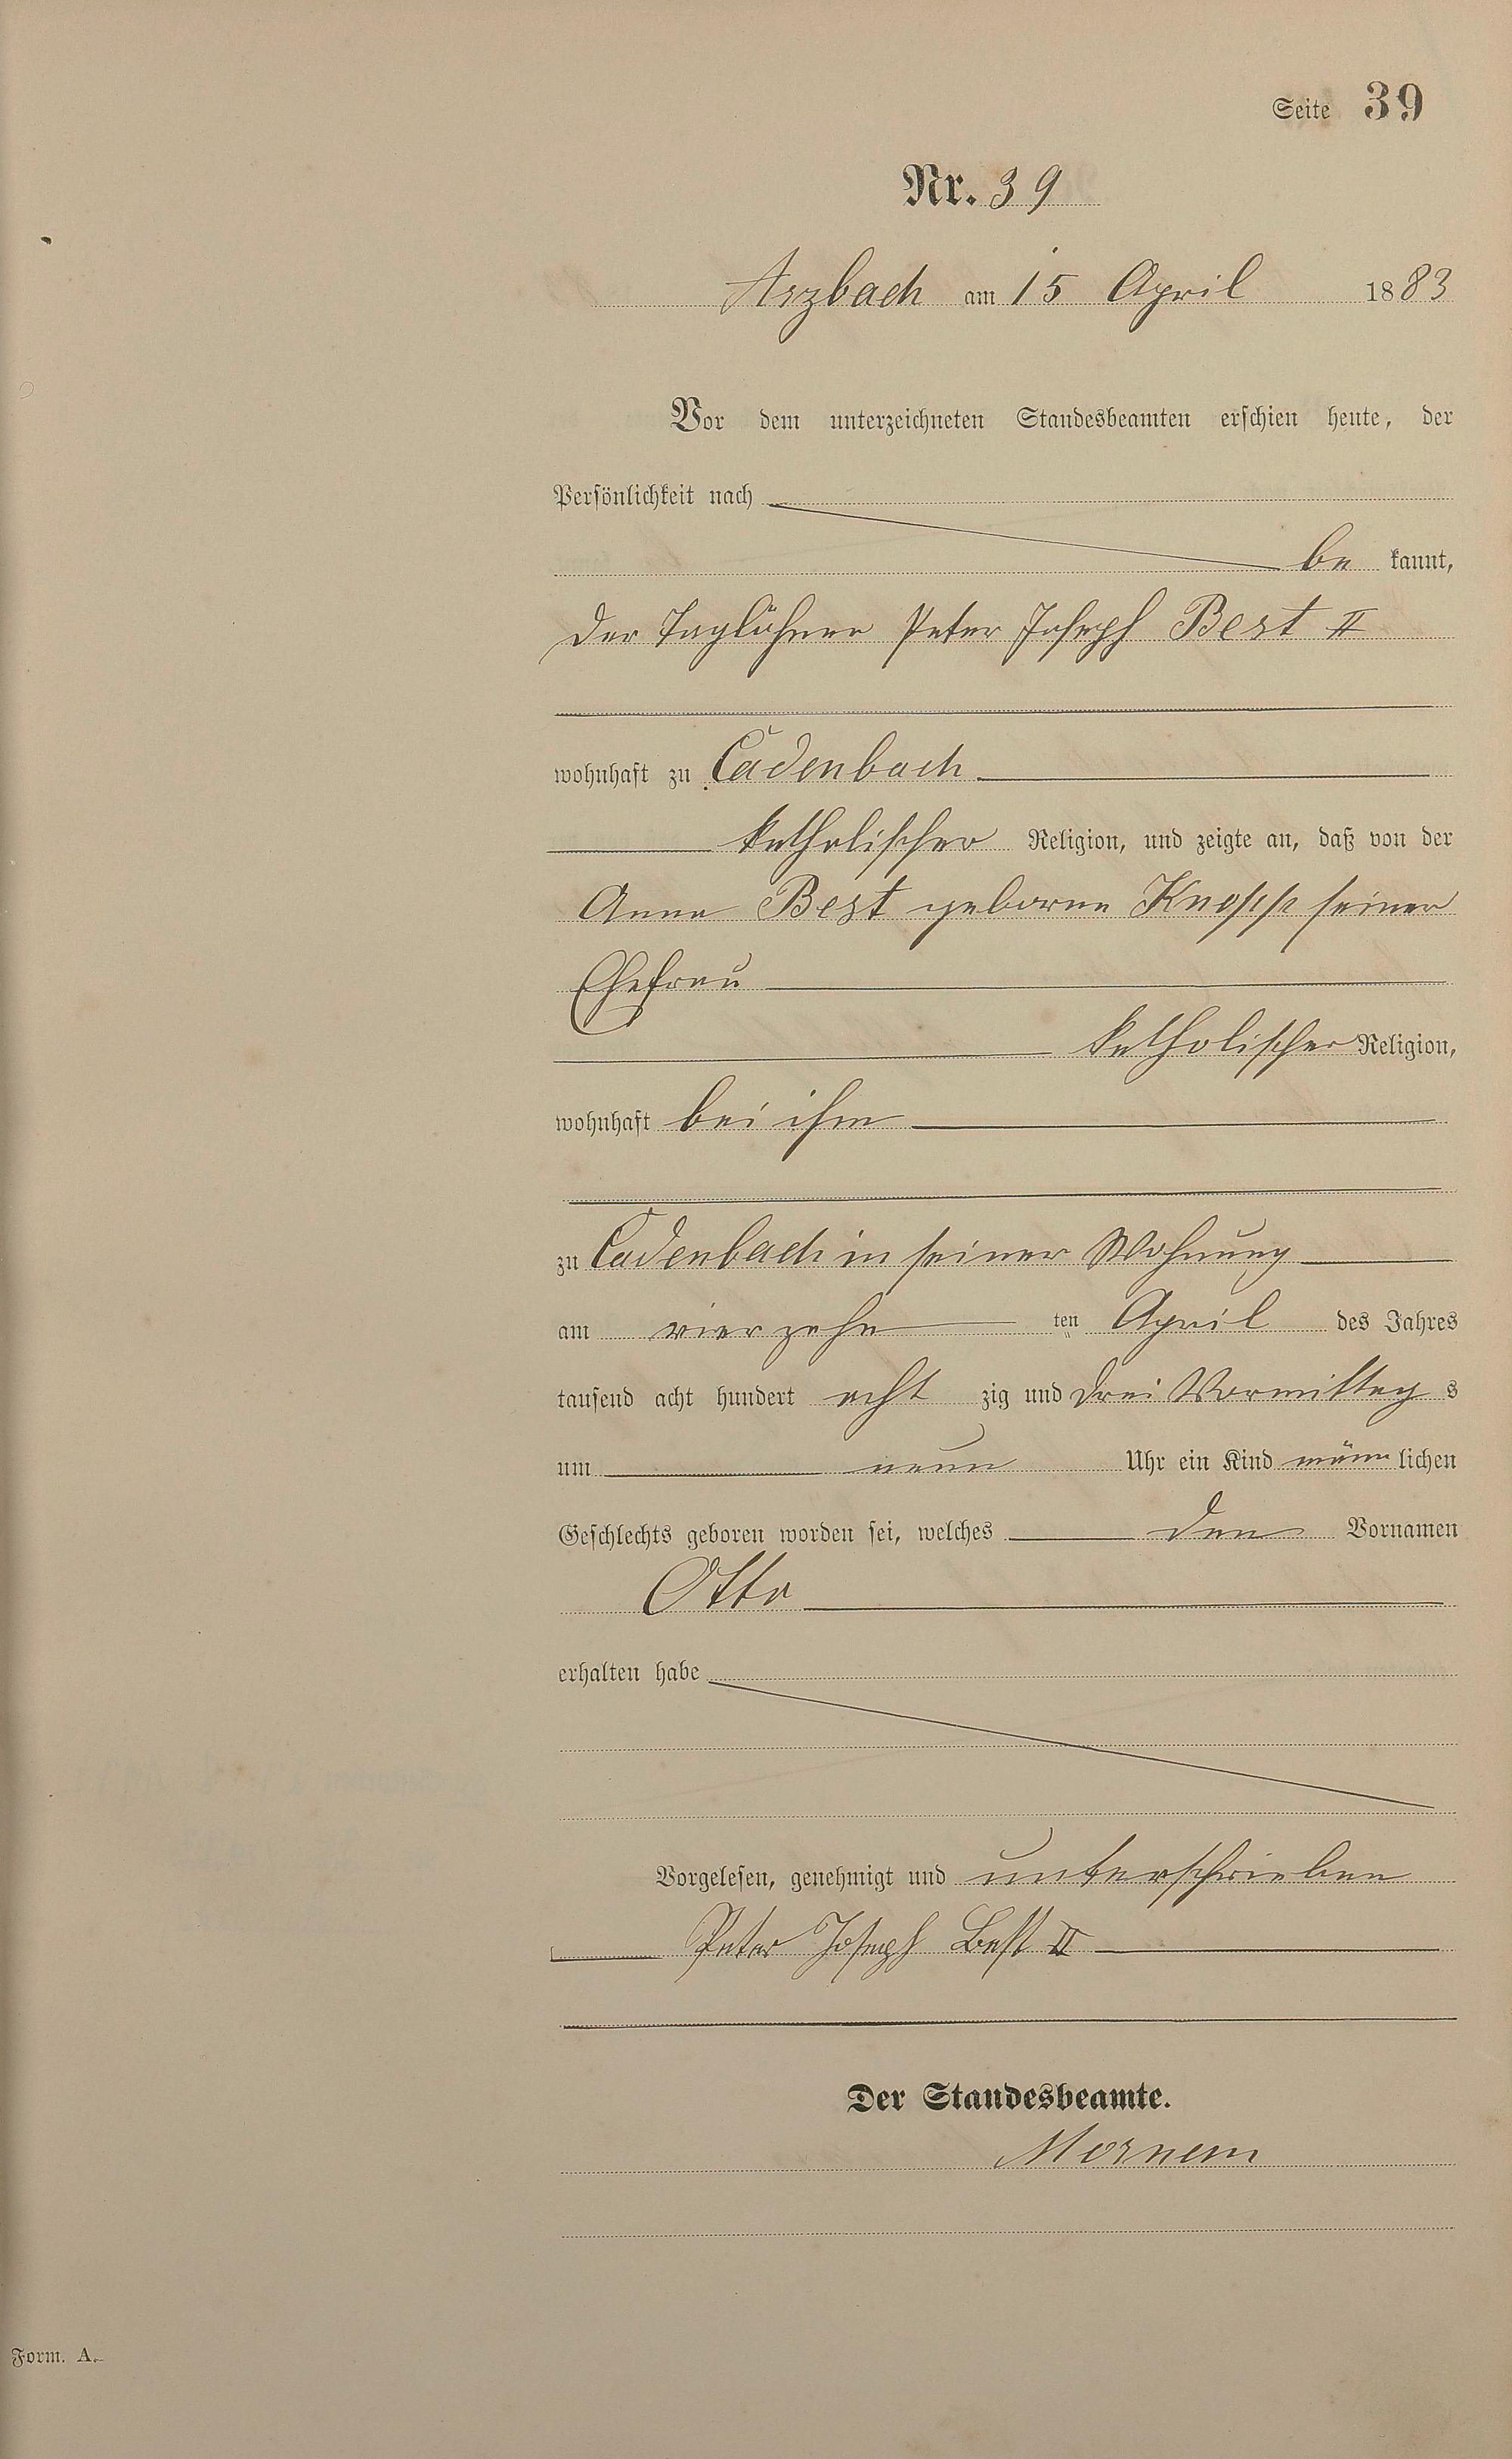 Seite 39
Nr. 39
Arzbach am 15 April 1883
Vor dem unterzeichneten Standesbeamten erschien heute, der
Persönlichkeit nach
be kannt,
der Taglöhner Peter Joseph Best II
wohnhaft zu Cadenbach
katholischer Religion, und zeigte an, daß von der
Anna Best geborne Knopp seiner
Ehefrau
katholischer Religion,
wohnhaft bei ihm
zu Cadenbach in seiner Wohnung
am vierzehn ten April des Jahres
tausend acht hundert acht zig und drei Vormittag s
um neun Uhr ein Kind männ lichen
Geschlechts geboren worden sei, welches den Vornamen
Otto
erhalten habe
Vorgelesen, genehmigt und unterschrieben
Peter Joseph Best II
Der Standesbeamte.
Form. A.